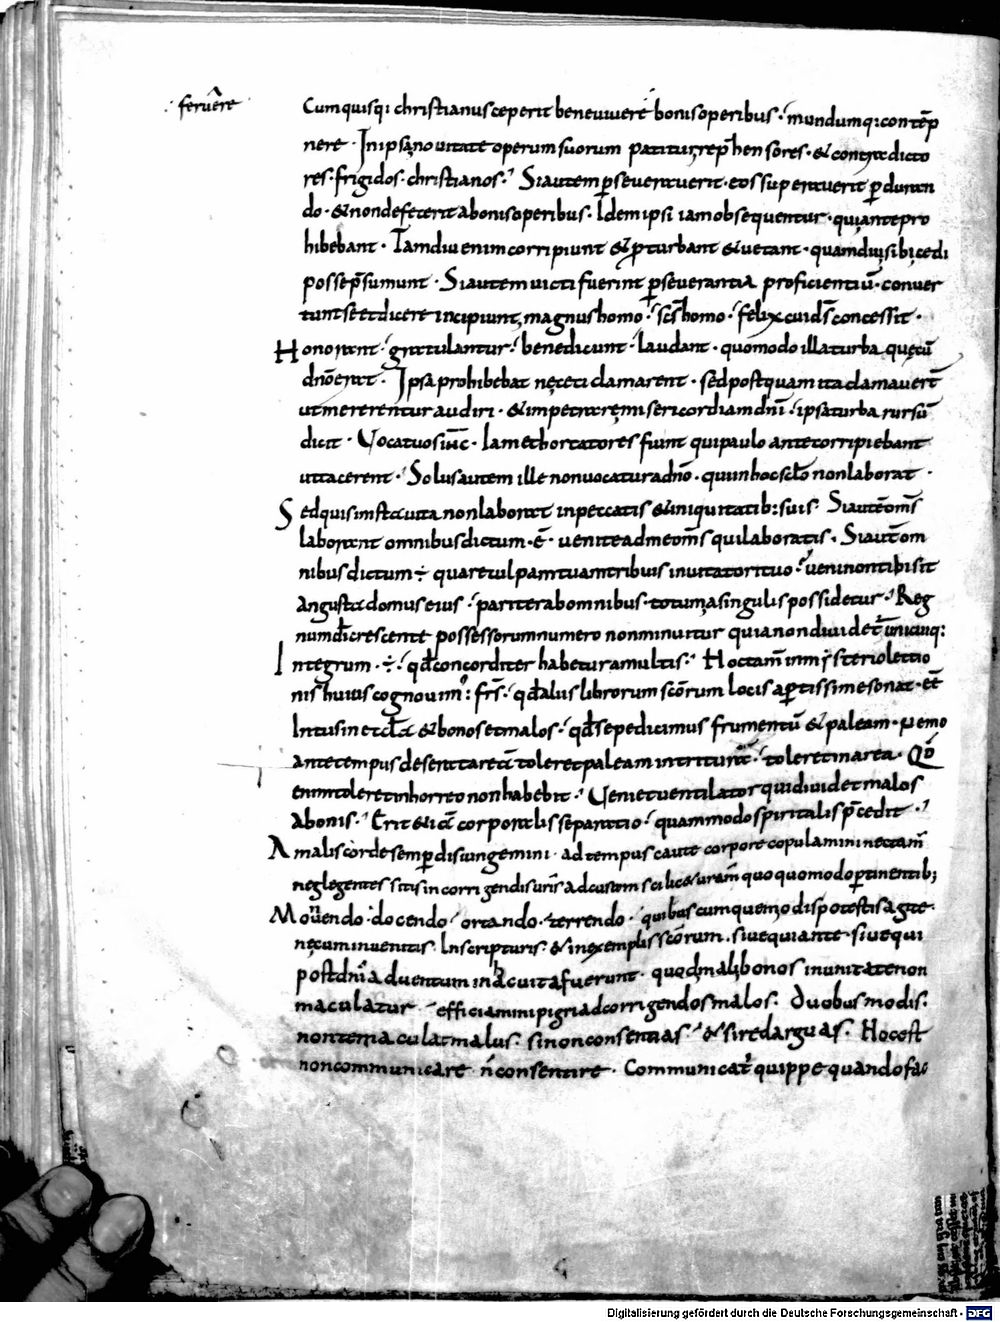 feruere
Cum quisq: christianus ceperit bene uiuere bonis operibus · mundumq: contēp
nere · In ipsa nouitate operum suorum patitur reprhensores · & contradicto
res · frigidos · christianos · Si autem pseuerauerit · eos superauerit pduran
do · & non defecerit a bonis operibus · Idem ipsi iam obsequentur · qui ante pro
hibebant · Tamdiu enim corripiunt & pturbant & uetant · quamdiu sibi cedi
posse psumunt · Si autem uicti fuerint pseuerantia proficientiū · conuer
tunt se et dicere incipiunt, magnus homo · scs homo · felix cui ds concessit ·
Honorant · gratulantur · benedicunt · laudant · quomodo illa turba que cū
dno erat · Ipsa prohibebat ne ceci clamarent · sed postquam ita clamauert
ut mererentur audiri · & impetrare misericordiam dni · ipsa turba rursū
dicit · Vocat uos · Iam et hortatores fiunt qui paulo ante corripiebant
ut tacerent · Solus autem ille non uocatur a dno · qui in hoc sclo non laborat ·
Sed quis in ista uita non laborat in peccatis & iniquitatib: suis · Si autē oms
laborant omnibus dictum · ē · uenite ad me oms qui laboratis · Si aut om
nibus dictum ÷ quare culpam tuam tribuis inuitatori tuo · ueni non tibi sit
angusta domus eius · pariter ab omnibus · totum a singulis possidetur · Reg
num di crescente possessorum numero non minuitur quia non diuidet unicuiq:
Integrum · ÷ · qd concorditer habetur a multis · Hoc tam in mysterio lectio
nis huius cognouim · frs · qd alus librorum scorum locis aptissime sonat · eē
Intus in eccla & bonos et malos · qd sepe dicimus frumentū & paleam · nemo
ante tempus deserat areā toleret paleam in tritura · toleret in area · Qd
enim toleret in horreo non habebit · Veniet uentilator qui diuidet malos
a bonis · Erit & iā corporalis separatio · quam modo spiritalis pcedit ·
A malis corde semp disiungemini · ad tempus caute corpore copulamini nec tam
neglegentes sitis in corrigendis uris ad curam scilicet uram quoquomodo ptinentib;
Mouendo · docendo · ortando · terrendo · quibus cumque modis potestis agite ·
ne cum inuenitis · In scripturis · & in exemplis scorum · siue qui ante · siue qui
post dni aduentum in hac uita fuerunt · quod mali bonos in unitate non
maculatur · efficiamini pigri ad corrigendos malos · Duobus modis ·
non te maculat malus · si non consentias · & si redarguas · Hoc est
non communicare n consentire · Communicat quippe quando fac
Digitalisierung gefördert durch die Deutsche Forschungsgemeinschaft - DFG